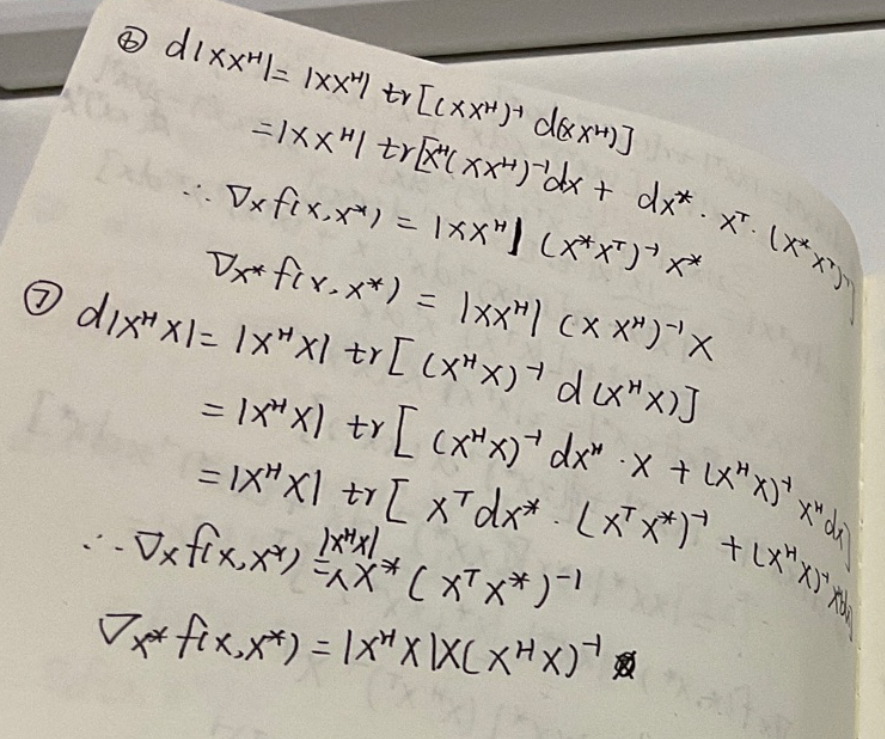 ⑥ d|XX^H| = |XX^H| tr[(XX^H)^-1 d(XX^H)]
= |XX^H| tr[X^H(XX^H)^-1 dX + dX* · X^T · (X*X^T)^-1]
∴ ∇_X f(X,X*) = |XX^H| (X*X^T)^-1 X*
∇_X* f(X,X*) = |XX^H| (XX^H)^-1 X
⑦ d|X^H X| = |X^H X| tr[(X^H X)^-1 d(X^H X)]
= |X^H X| tr[(X^H X)^-1 dX^H · X + (X^H X)^-1 X^H dX]
= |X^H X| tr[X^T dX* · (X^T X*)^-1 + (X^H X)^-1 X^H dX]
∴ ∇_X f(X,X*) = |X^H X| X* (X^T X*)^-1
∇_X* f(X,X*) = |X^H X| X(X^H X)^-1